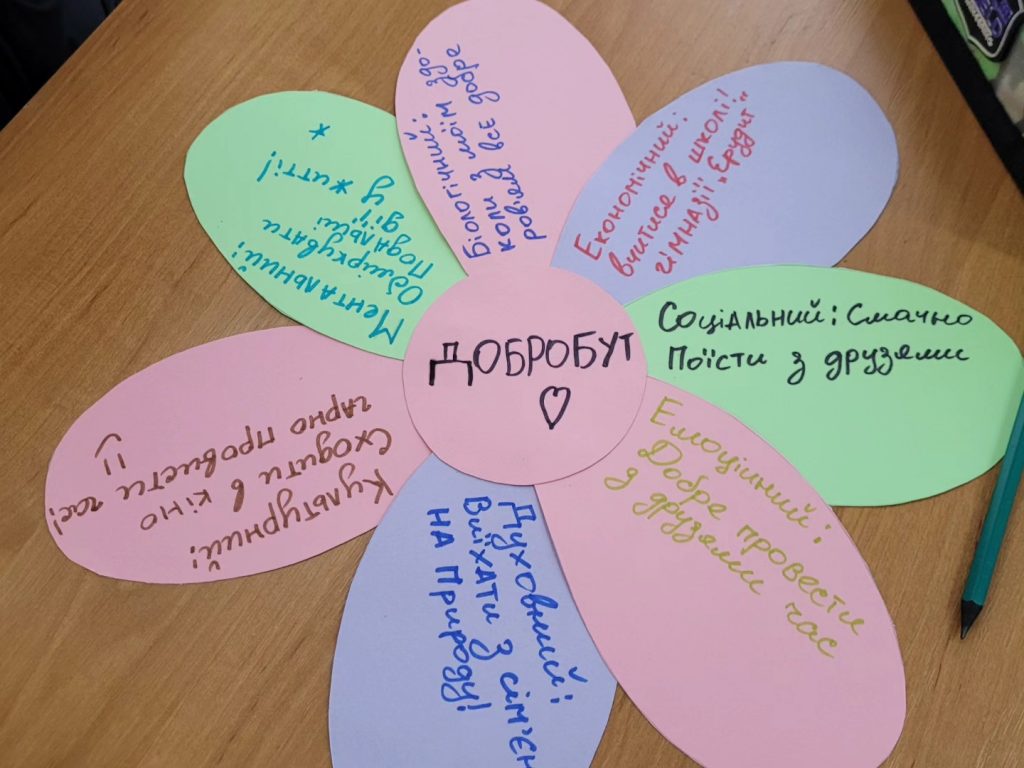 ДОБРОБУТ
Біологічний:
коли з моїм здо-
ров'ям все добре
Економічний:
вчитися в школі!
гімназії „Ерудит"
Соціальний: Смачно
Поїсти з друзями
Емоційний:
Добре провести
з друзями час
Духовний:
Виїхати з сім'єю
на природу!
Культурний:
Сходити в кіно
гарно провисти час!
Ментальний:
Обміркувати
Подальші
дії
у житті!